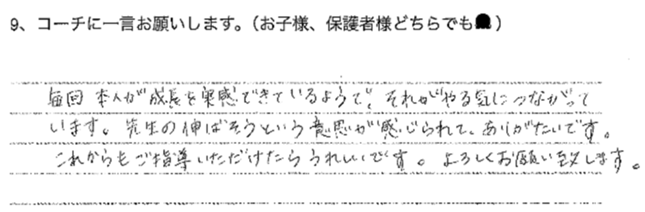 9、コーチに一言お願いします。(お子様、保護者様どちらでも●)
毎回 本人が成長を実感できているようで、それがやる気につながって
います。先生の伸ばそうという意思が感じられて、ありがたいです。
これからもご指導いただけたらうれしいです。よろしくお願い致します。